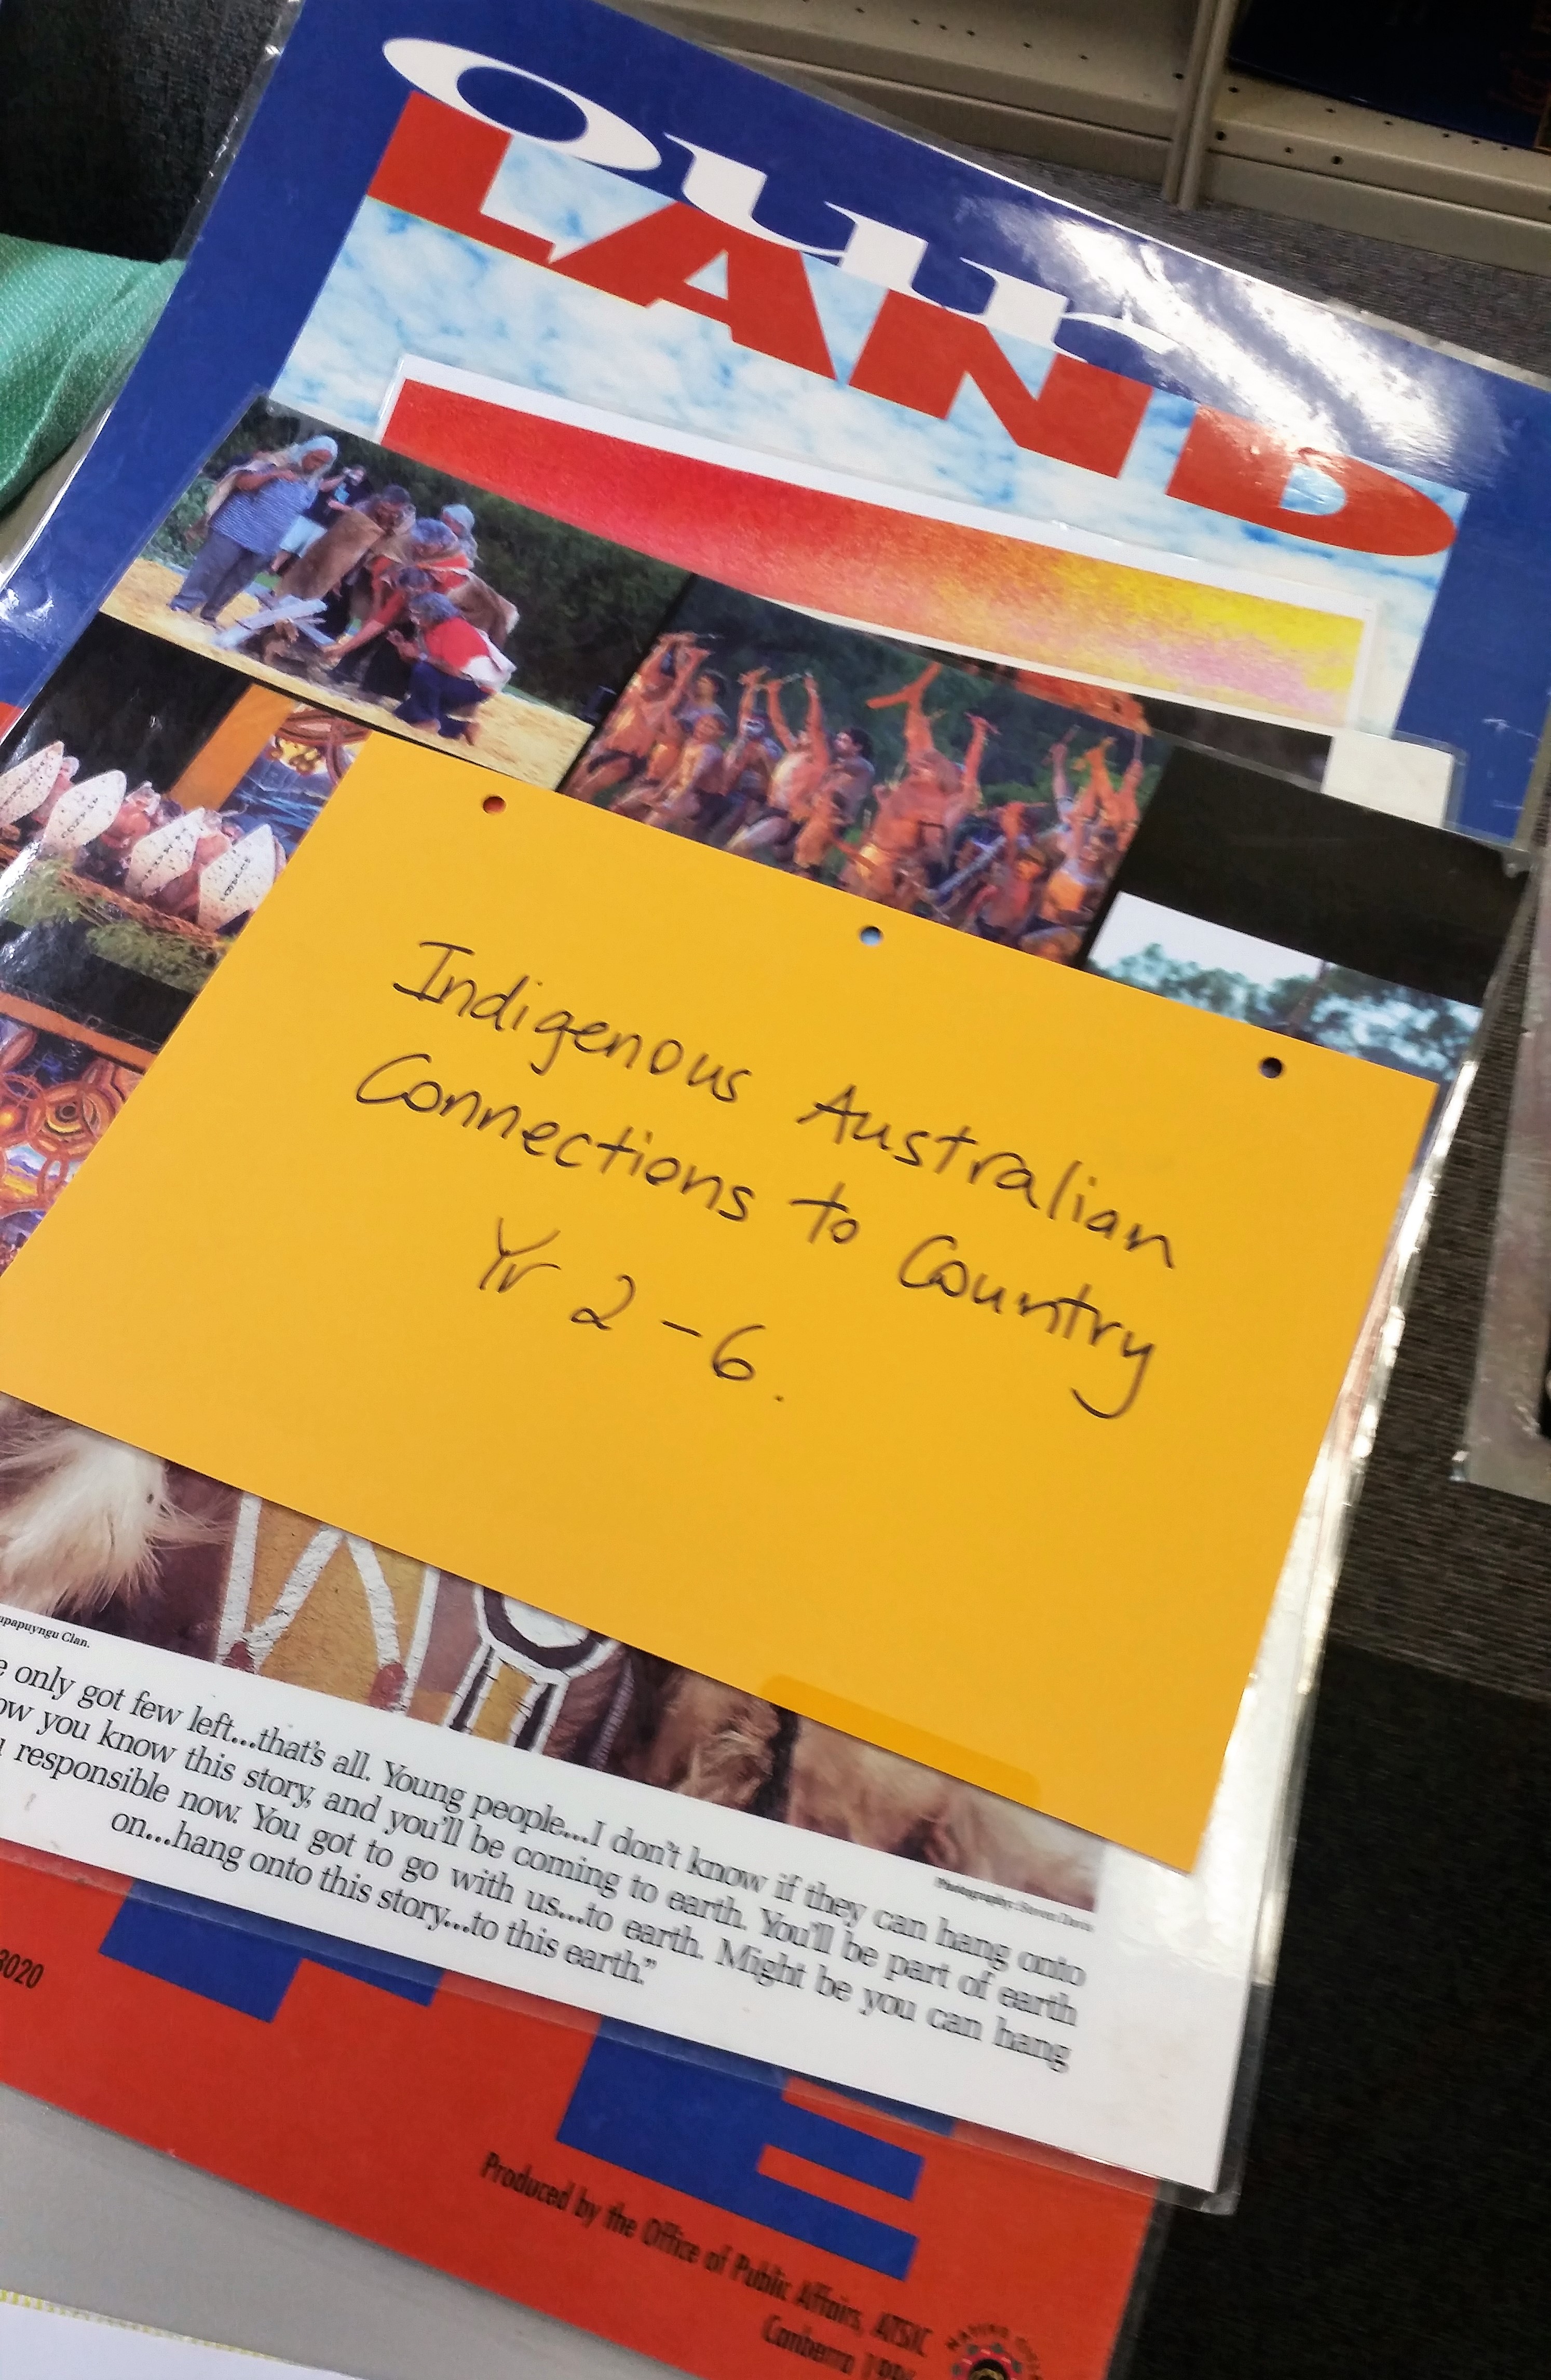 Our
LAND
Indigenous Australian
Connections to Country
Yr 2-6.
Clan.
only got few left...that's all. Young people...I don't know if they can hang onto
you know this story, and you'll be coming to earth. You'll be part of earth
responsible now. You got to go with us...to earth. Might be you can hang
on...hang onto this story...to this earth."
Photography:
3020
Produced by the Office of Public Affairs, ATSIC
Canberra